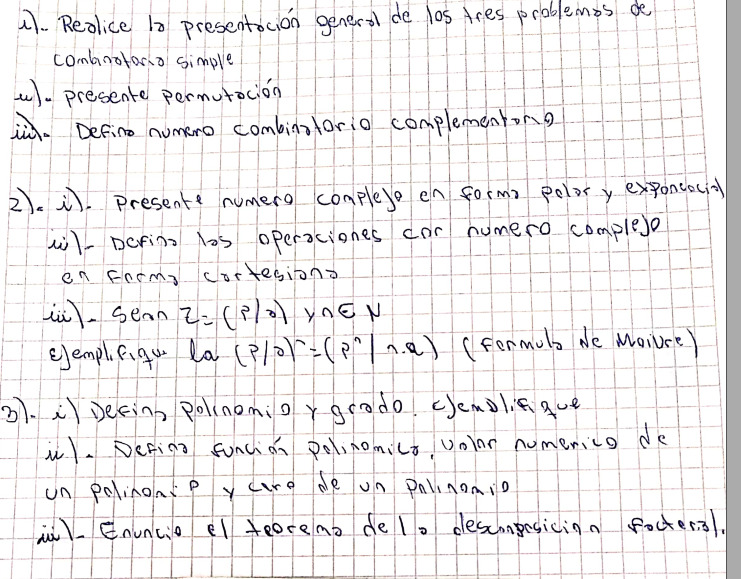 i)- Realice la presentación general de los tres problemas de
combinatoria simple
ii)- presente permutación
iii)- Defina numero combinatorio complementario
2)- i)- presente numero complejo en forma polar y exponencial
ii)- Defina las operaciones con numero complejo
en forma cartesiana
iii)- Sean Z=(P/a) y n∈N
ejemplifique la (P/a)ⁿ=(Pⁿ/n.a) (formula de Moivre)
3)- i) Defina polinomio y grado. ejemplifique
ii)- Defina función polinomica, valor numerico de
un polinomio y cero de un polinomio
iii)- Enuncie el teorema de la descomposicion factorial.